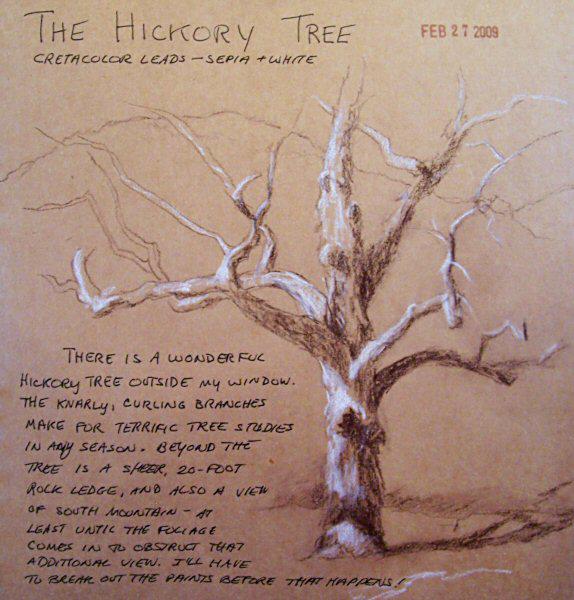 THE HICKORY TREE
FEB 27 2009
CRETACOLOR LEADS – SEPIA + WHITE
THERE IS A WONDERFUL
HICKORY TREE OUTSIDE MY WINDOW.
THE KNARLY, CURLING BRANCHES
MAKE FOR TERRIFIC TREE STUDIES
IN ANY SEASON. BEYOND THE
TREE IS A SHEER, 20-FOOT
ROCK LEDGE, AND ALSO A VIEW
OF SOUTH MOUNTAIN – AT
LEAST UNTIL THE FOLIAGE
COMES IN TO OBSTRUCT THAT
ADDITIONAL VIEW. I'LL HAVE
TO BREAK OUT THE PAINTS BEFORE THAT HAPPENS!